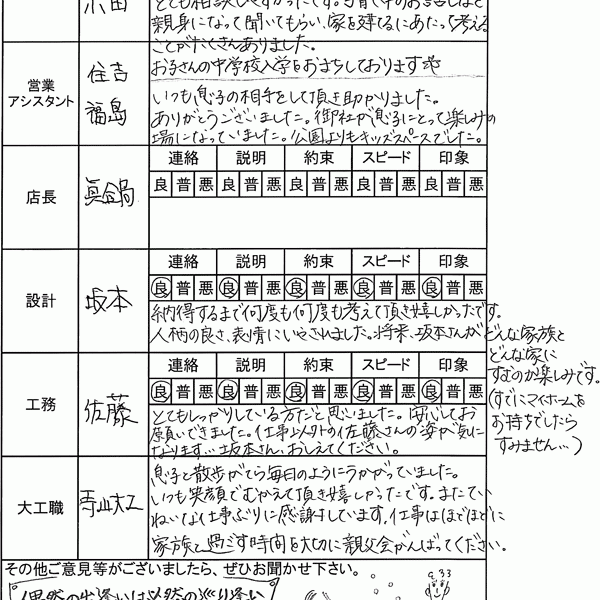 とても相談しやすかったです。子育て中のお話しなど
親身になって聞いてもらい、家を建てるにあたって考える
ことがたくさんありました。
営業
アシスタント
住吉
福島
お子さんの中学校入学をおまちしておりますや
いつも息子の相手をして頂き助かりました。
ありがとうございました。御社が息子にとって楽しみの
場になっていました。公園よりもキッズスペースでした。
店長
連絡 説明 約束 スピード 印象
良 普 悪 良 普 悪 良 普 悪 良 普 悪 良 普 悪
設計
坂本
連絡 説明 約束 スピード 印象
良 普 悪 良 普 悪 良 普 悪 良 普 悪 良 普 悪
納得するまで何度も何度も考えて頂き嬉しかったです。
人柄の良さ、表情にいやされました。将来、坂本さんが どんな家族と
どんな家に
すむのか楽しみです。
(すでにマイホームを
お持ちでしたら
すみません…)
工務
佐藤
連絡 説明 約束 スピード 印象
良 普 悪 良 普 悪 良 普 悪 良 普 悪 良 普 悪
とてもしっかりしている方だと思いました。安心してお
願いできました。仕事以外の佐藤さんの姿が気に
なります…坂本さん、おしえてください。
大工職
寺山大工
息子と散歩がてら毎日のようにうかがっていました。
いつも笑顔でむかえて頂き嬉しかったです。またてい
ねいな仕事ぶりに感謝しています。仕事はほどほどに
家族と過ごす時間を大切に親父会がんばってください。
その他ご意見等がございましたら、ぜひお聞かせ下さい。
偶然の出逢いは必然の巡り逢い